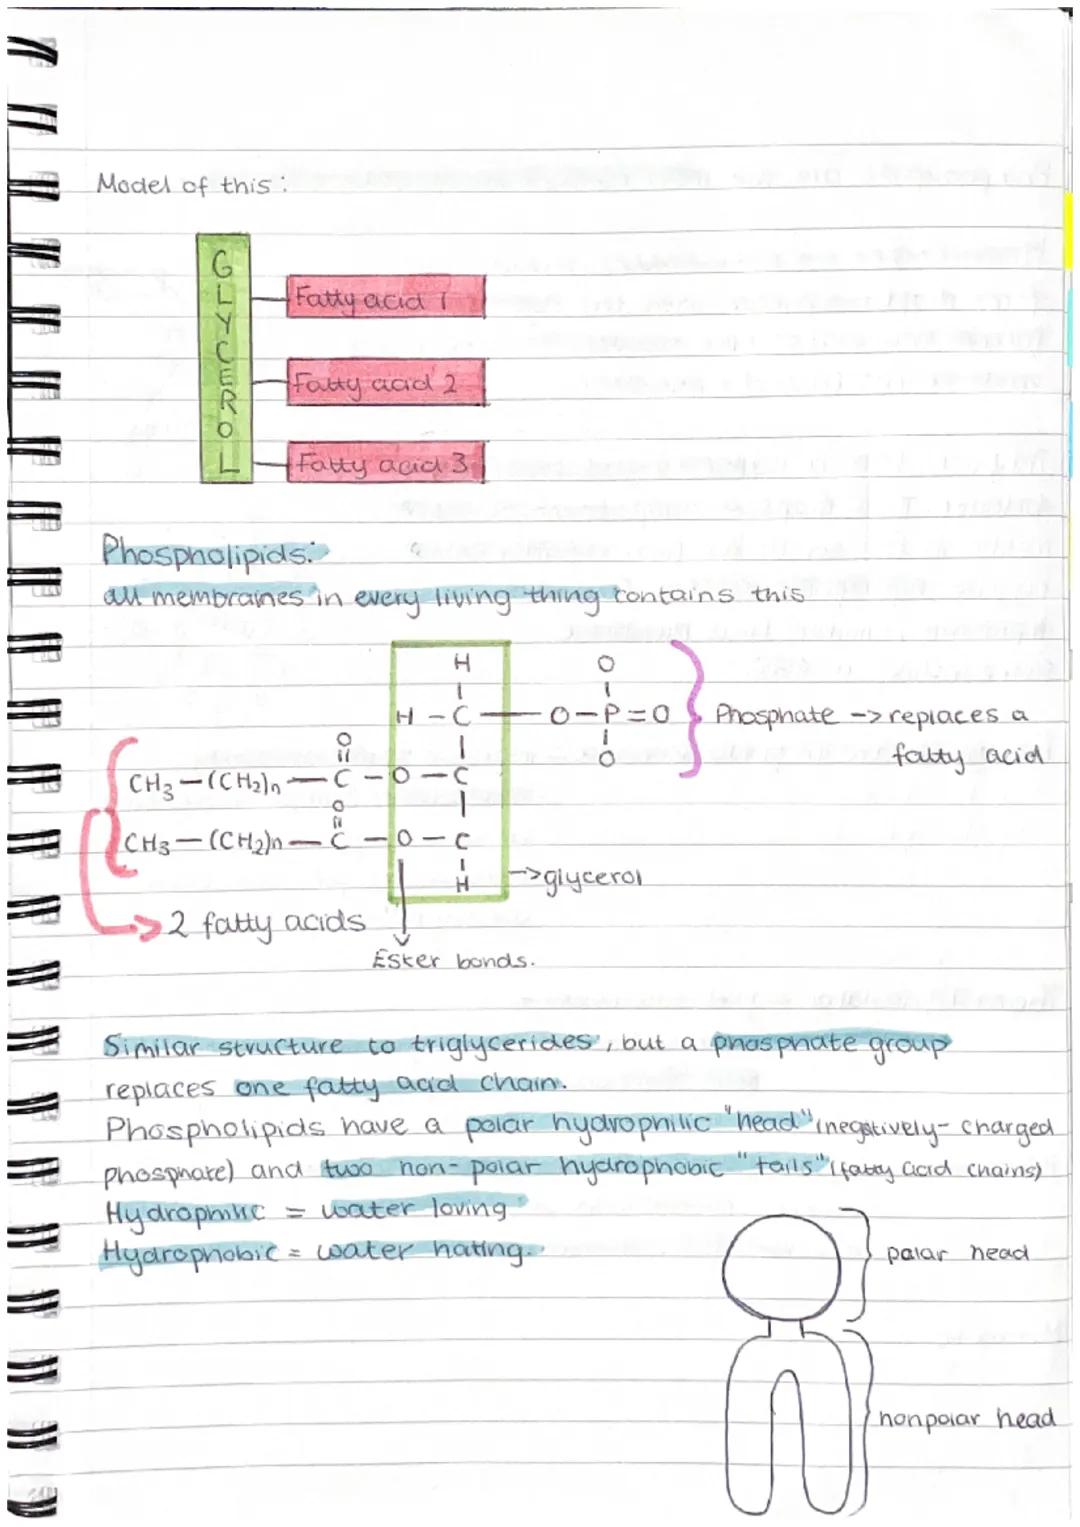 Model of this:
GLYCEROL
Fatty acid 1
Fatty acid 2
Fatty acid 3
Phospholipids:
all membranes in every living thing contains this
H
O
H - C - O - P = O
Phosphate -> replaces a
fatty acid
O
O
CH3 - (CH2)n - C - O - C
O
CH3 - (CH2)n - C - O - C
H
-> glycerol
2 fatty acids
Ester bonds.
Similar structure to triglycerides, but a phosphate group
replaces one fatty acid chain.
Phospholipids have a polar hydrophilic "head" (negatively-charged
phosphate) and two non-polar hydrophobic "tails" (fatty acid chains)
Hydrophilic = water loving
Hydrophobic = water hating.
polar head
nonpolar head